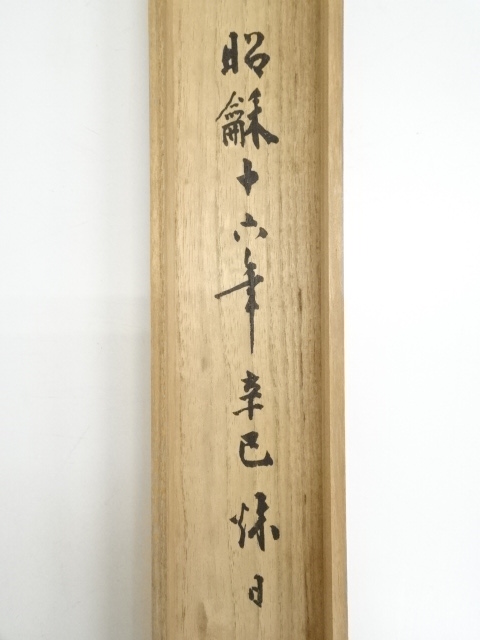 昭龢十六年辛巳秌日